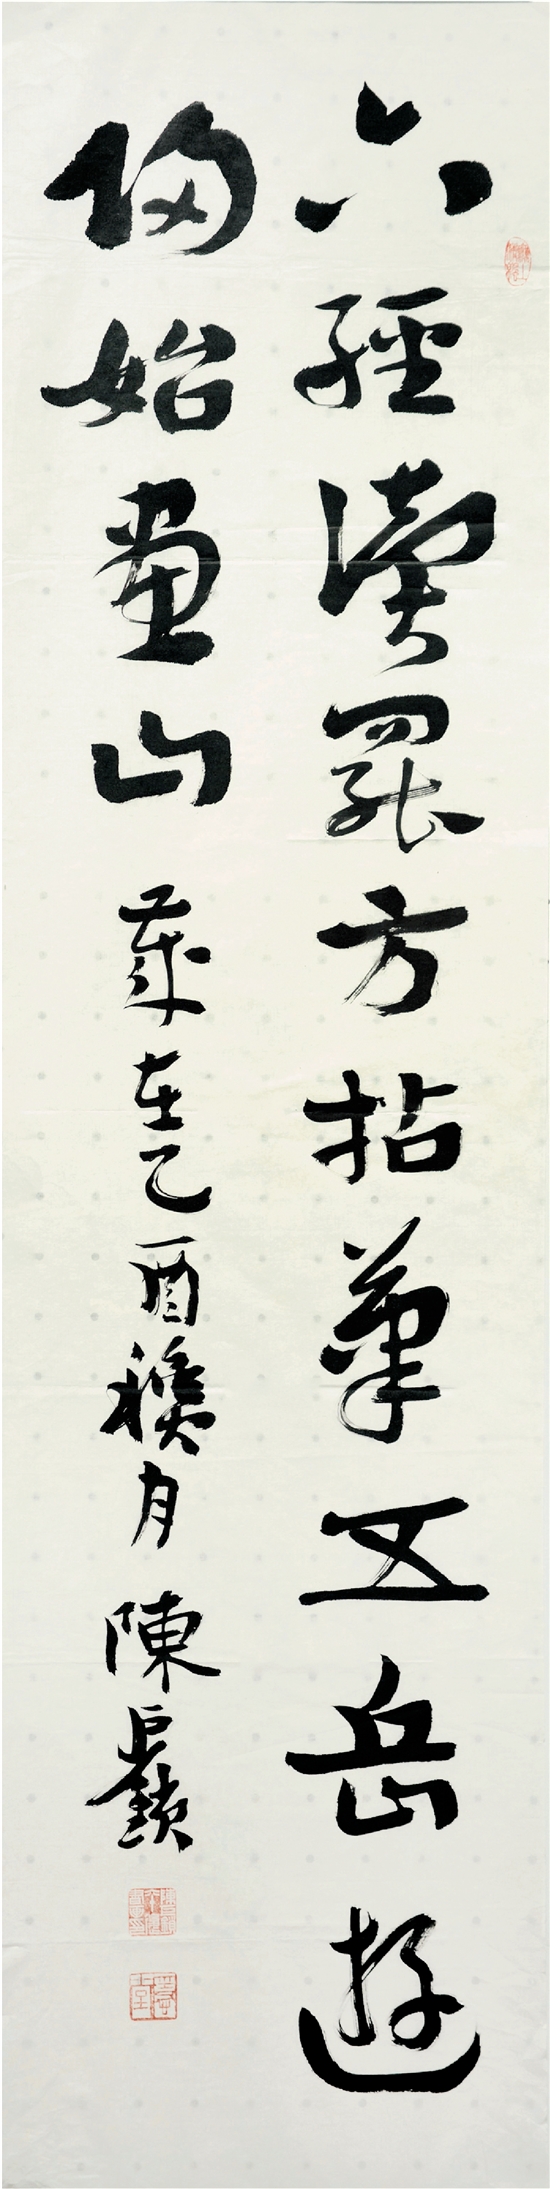 六經讀罷方拈筆五岳遊
歸始畫山歲在乙酉穐月陳巨鎖